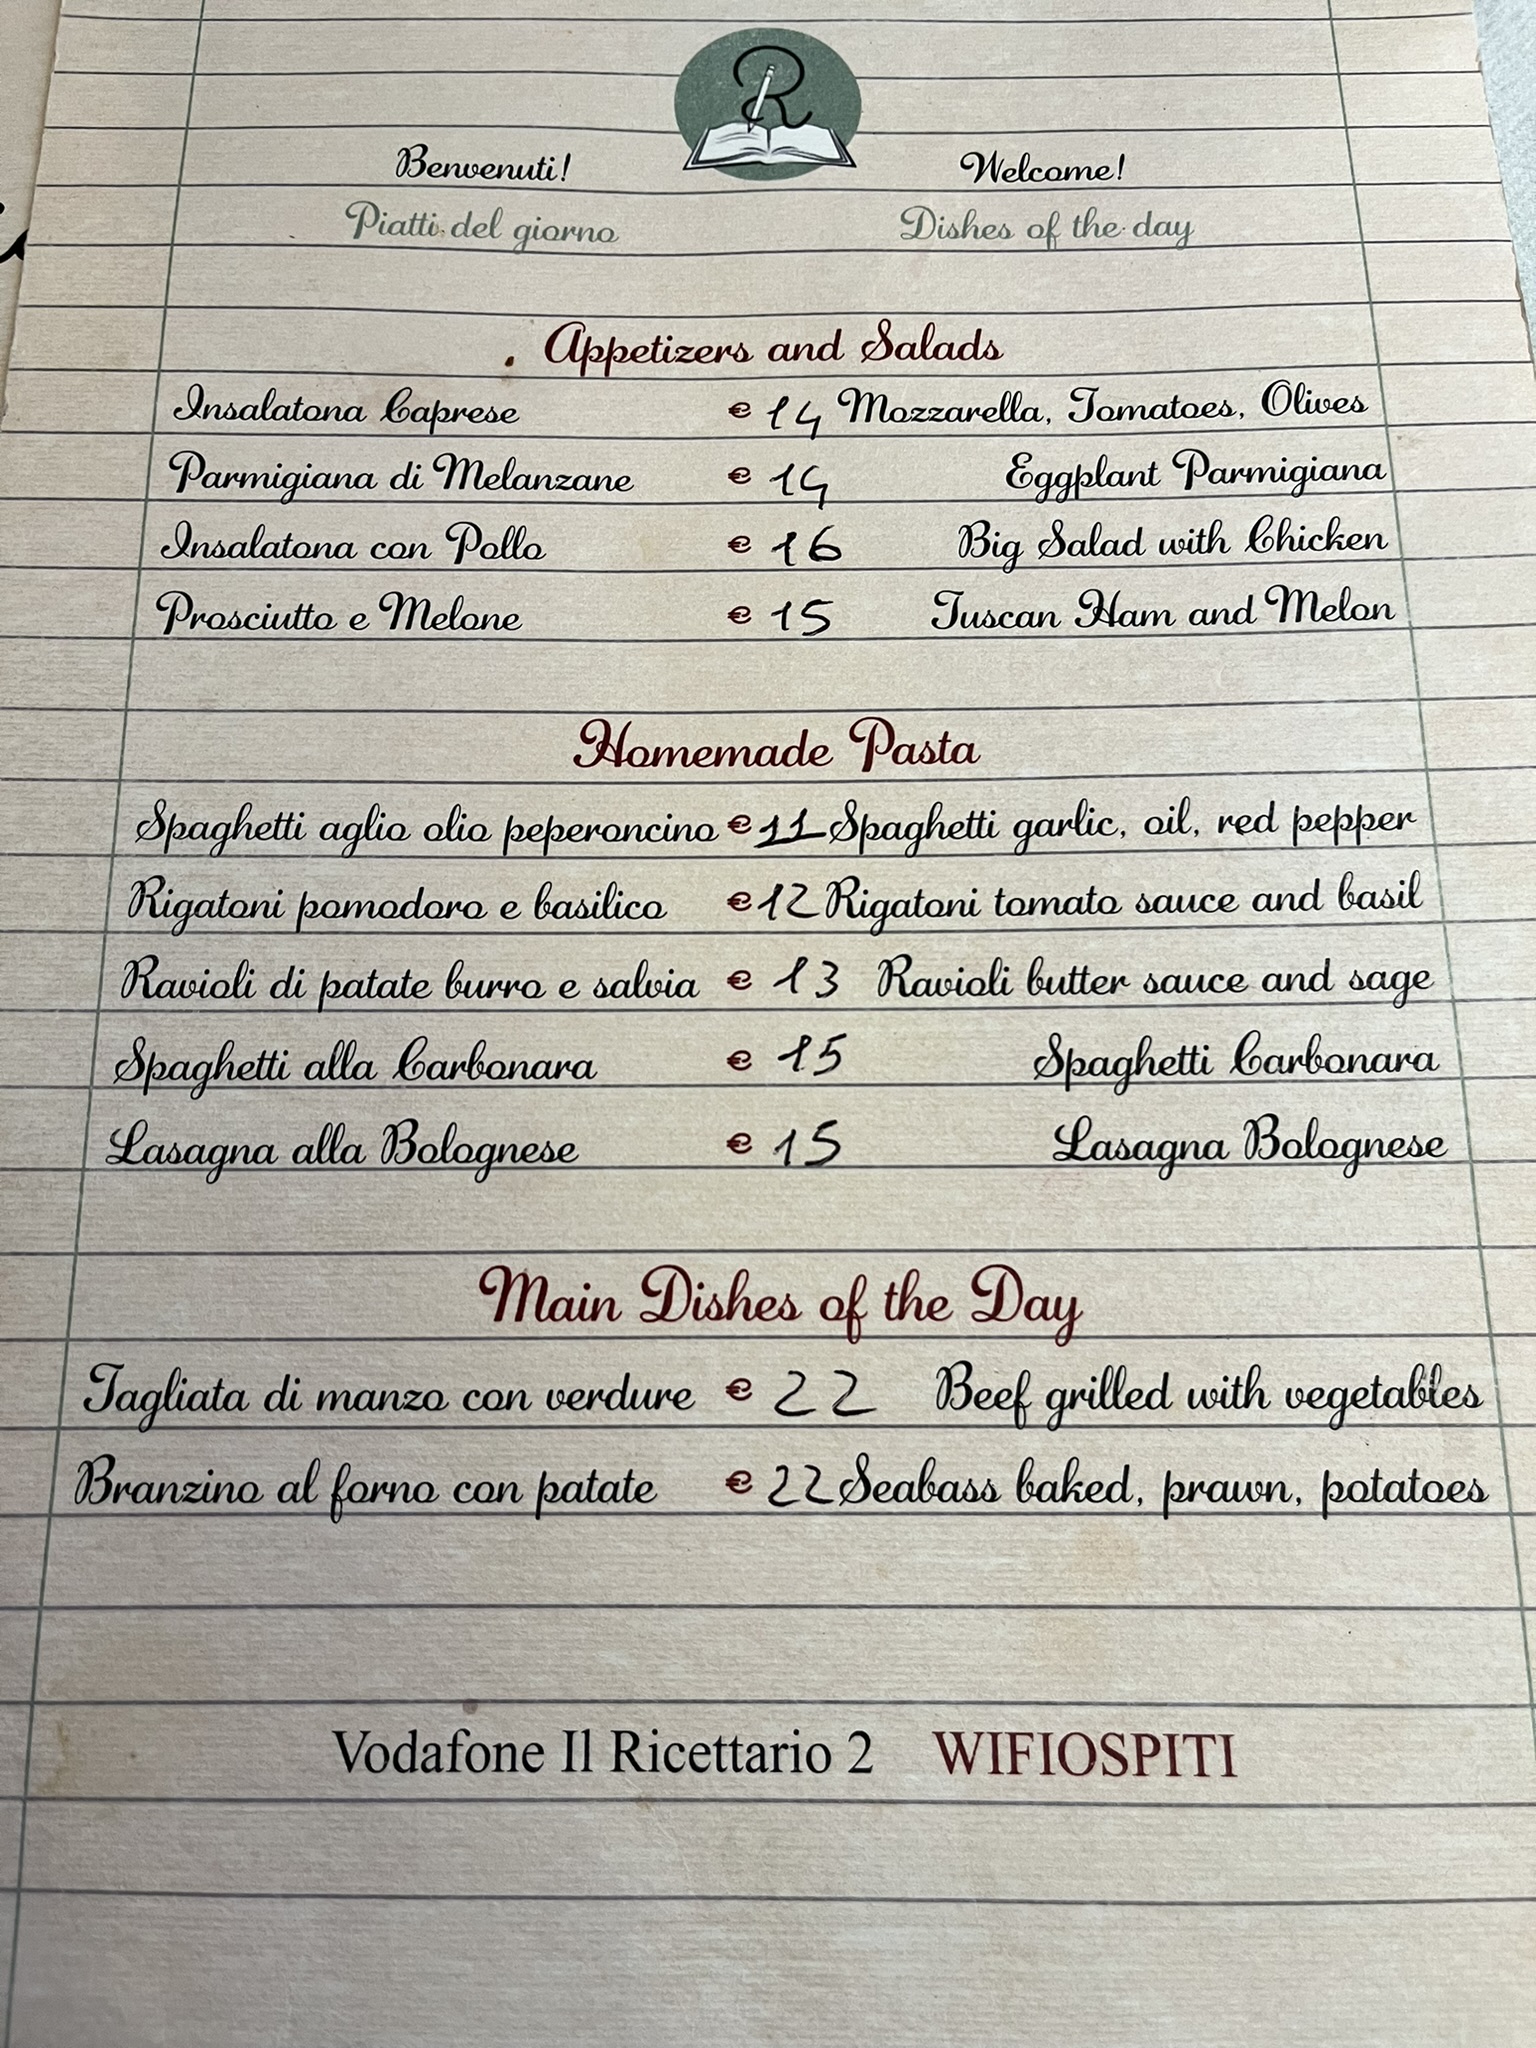 R
Benvenuti! Welcome!
Piatti del giorno Dishes of the day
Appetizers and Salads
Insalatona Caprese € 14 Mozzarella, Tomatoes, Olives
Parmigiana di Melanzane € 14 Eggplant Parmigiana
Insalatona con Pollo € 16 Big Salad with Chicken
Prosciutto e Melone € 15 Tuscan Ham and Melon
Homemade Pasta
Spaghetti aglio olio peperoncino € 11 Spaghetti garlic, oil, red pepper
Rigatoni pomodoro e basilico € 12 Rigatoni tomato sauce and basil
Ravioli di patate burro e salvia € 13 Ravioli butter sauce and sage
Spaghetti alla Carbonara € 15 Spaghetti Carbonara
Lasagna alla Bolognese € 15 Lasagna Bolognese
Main Dishes of the Day
Tagliata di manzo con verdure € 22 Beef grilled with vegetables
Branzino al forno con patate € 22 Seabass baked, prawn, potatoes
Vodafone Il Ricettario 2 WIFIOSPITI